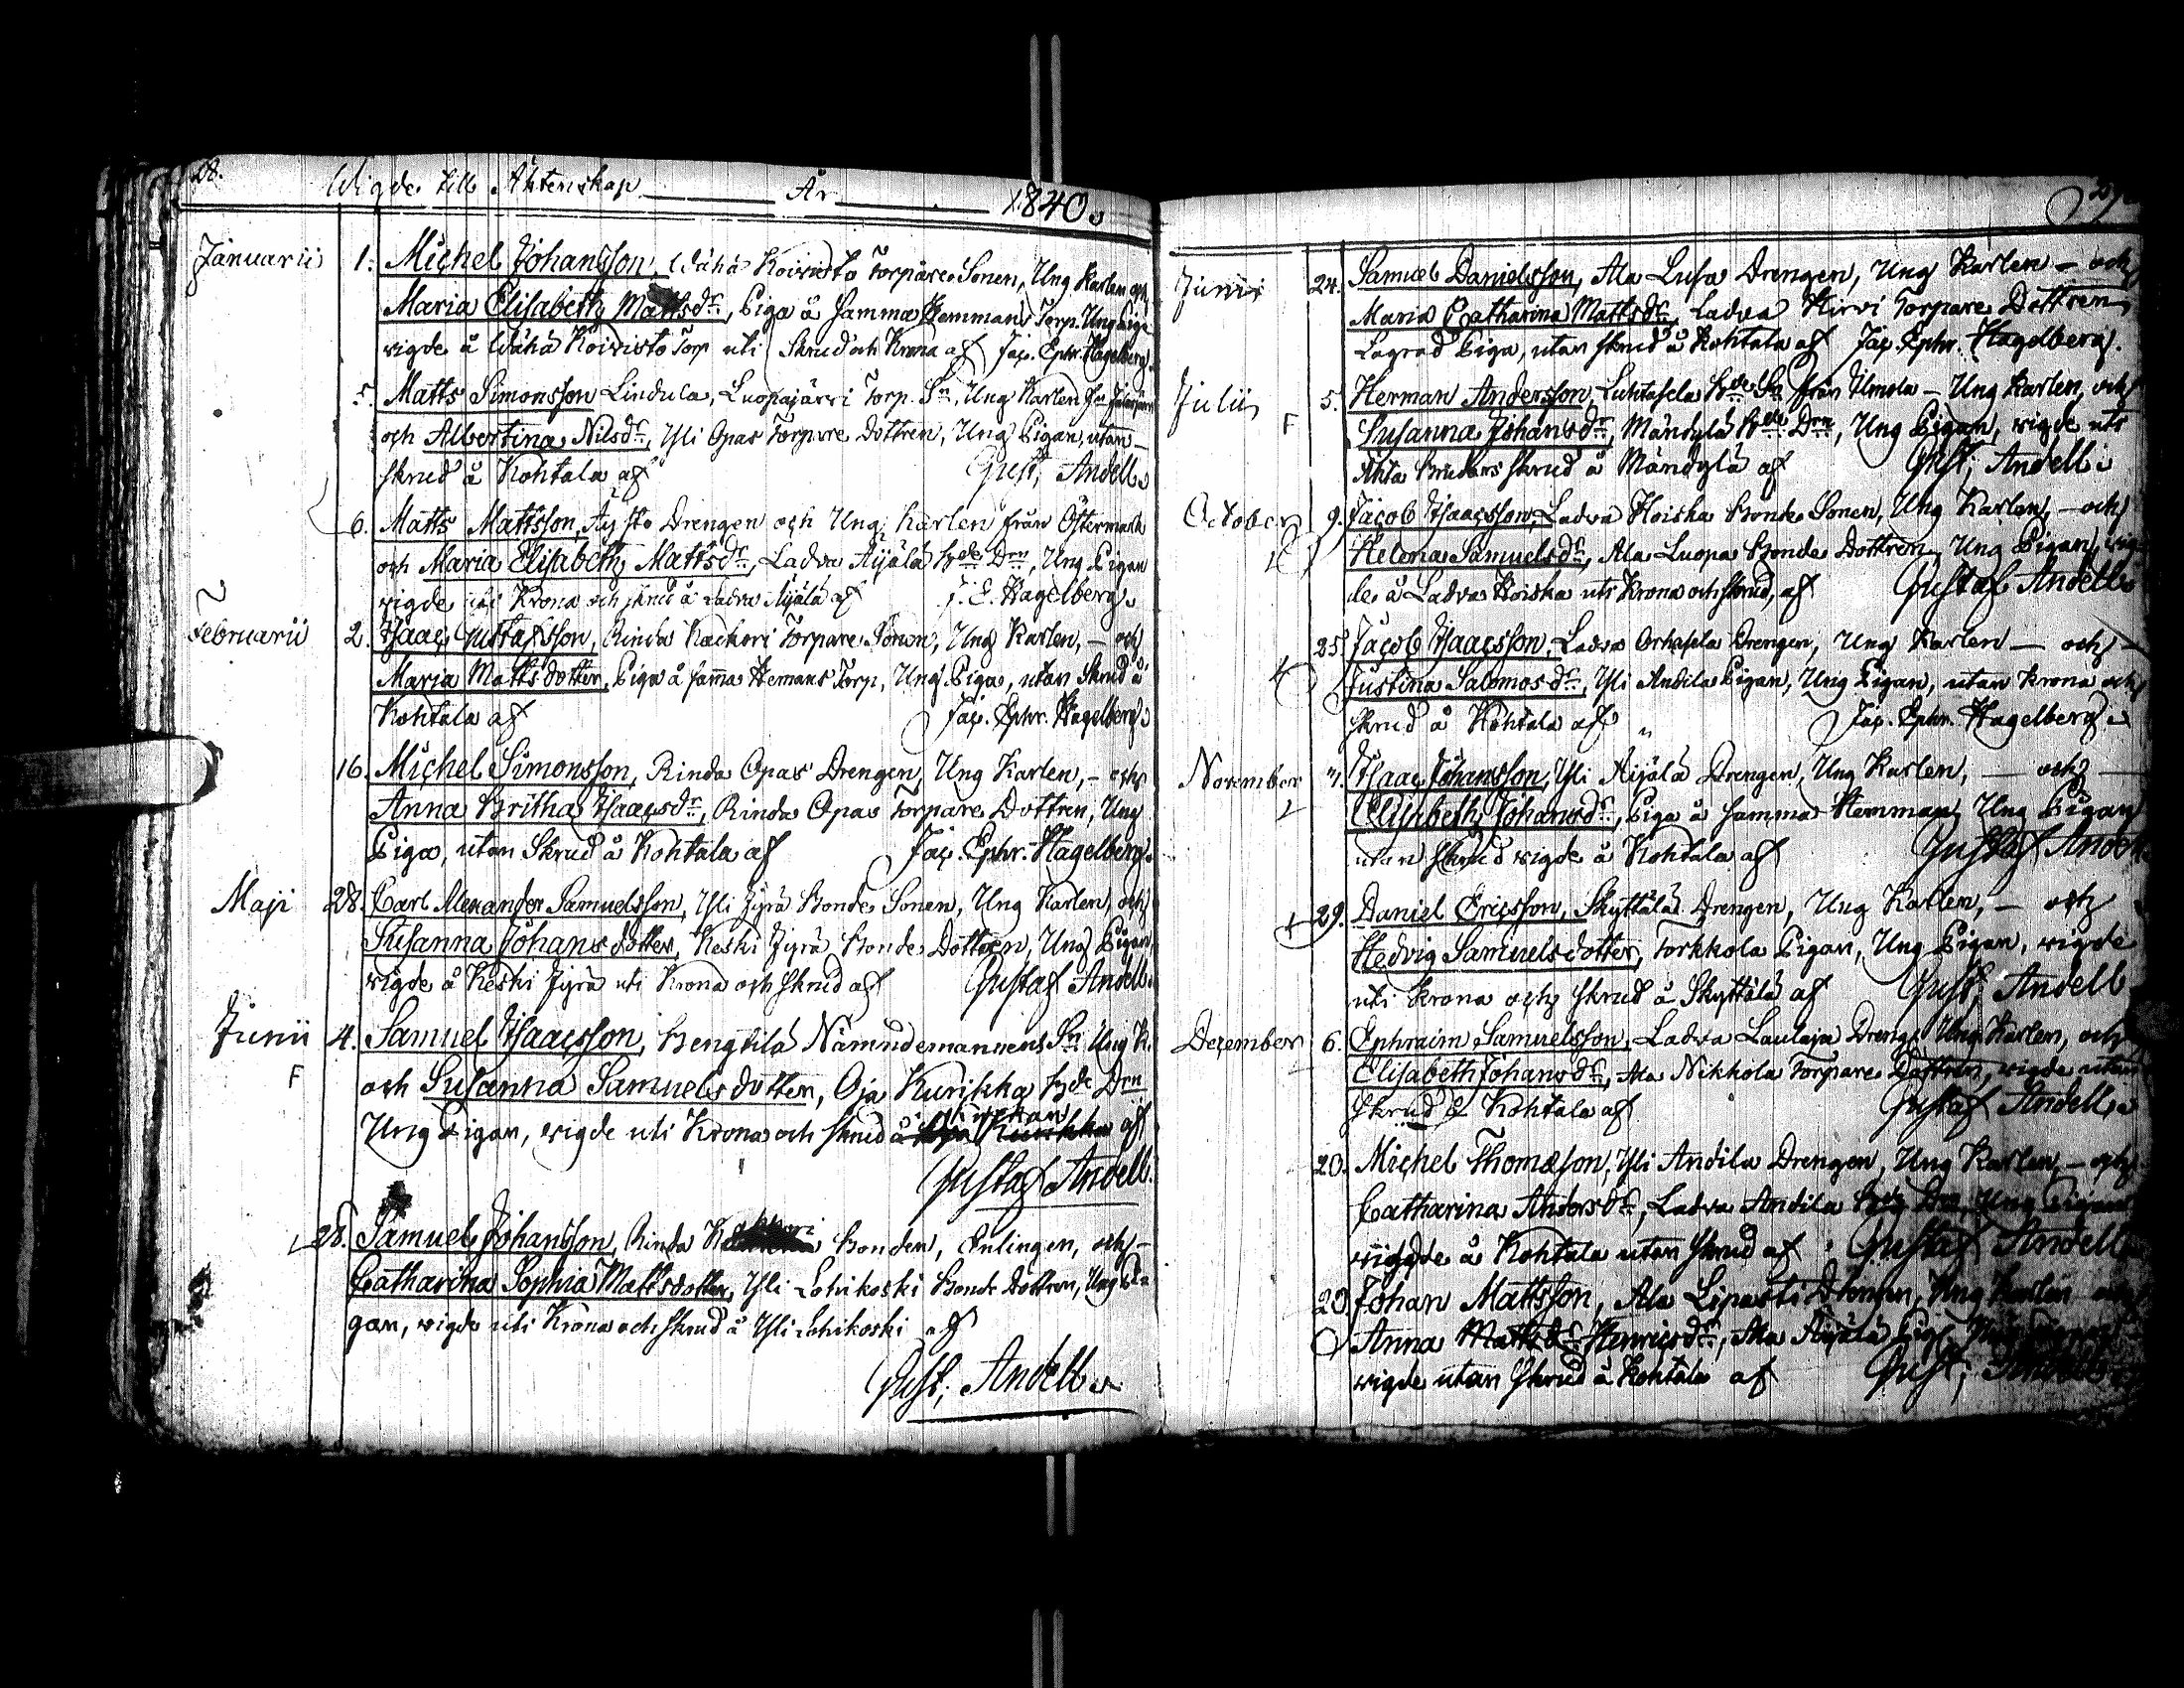 28.
Wigde till Äktenskap År 1840.
Januarii 1. Michel Johansson, Wähä Koivisto Torpare Sonen, Ung Karlen och
Maria Elisabeth Mattsdr, Piga å samma Hemmans Torp. Ung Piga
vigde å Wähä Koivisto Torp uti Skrud och Krona af Jac. Ephr. Hagelberg.
5. Matts Simonsson Lindula, Luopajärvi Torp. Sn, Ung Karlen
och Albertina Nilsdr, Yli Opas Torpare dottren, Ung Pigan, utan
skrud å Kohtala af Gust. Andell.
6. Matts Mattsson, Äystö Drengen och Ung Karlen från Östermark
och Maria Elisabeth Mattsdr, Ladva Äijälä Bde Drn, Ung Pigan
vigde uti Krona och skrud å Ladva Äijälä af J. E. Hagelberg.
Februarii 2. Isaac Gustafsson, Rinda Kackori Torpare Sonen, Ung Karlen, — och
Maria Matts dotter, Piga å samma Hemans Torp, Ung Piga, utan Skrud å
Kohtala af Jac. Ephr. Hagelberg.
16. Michel Simonsson, Rinda Opas Drengen, Ung Karlen, — och
Anna Britha Isaacsdr, Rinda Opas Torpare Dottren, Ung
Piga, utan Skrud å Kohtala af Jac. Ephr. Hagelberg.
Maji 28. Carl Alexander Samuelsson, Yli Jyrä Bonde Sonen, Ung Karlen, och
Susanna Johans dotter, Keski Jyrä Bonde Dottren, Ung Pigan,
vigde å Keski Jyrä uti Krona och skrud af Gustaf Andell.
Junii 4. Samuel Isaacsson, Bengtilä Nämndemannens Sn Ung K.
F
och Susanna Samuels dotter, Oja Kurikka Bde Drn
Ung Pigan, vigde uti Krona och skrud å Kyrkan af
Gustaf Andell.
28. Samuel Johansson, Rinda Bonden, Enlingen, och —
Catharina Sophia Mattsdotter, Yli Lohikoski Bonde Dottren, Ung Pi-
gan, vigde uti Krona och Skrud å Yli Lohikoski af
Gust. Andell.
Junii 24. Samuel Danielsson, Ala Lusa Drengen, Ung Karlen — och
Maria Catharina Mattsdr, Ladva Hirvi Torpare Dottren
Lagrad Piga, utan skrud å Kohtala af Jac. Ephr. Hagelberg.
Julii 5. Herman Andersson, Luhtasela Bde Sn från Ilmola — Ung Karlen, och
F
Susanna Johansdr, Mändylä Bde Drn, Ung Pigan, vigde uti
Äkta Brudars skrud å Mändylä af Gust. Andell.
October 9. Jacob Isaacsson, Ladva Hoiska Bonde Sonen, Ung Karlen, — och
Helena Samuelsdr, Ala Luopa Bonde Dottren, Ung Pigan, vig-
de å Ladva Hoiska uti Krona och skrud, af Gustaf Andell.
25. Jacob Isaacsson, Ladva Orhasela Drengen, Ung Karlen — och
Justina Salomosdr, Yli Andila Pigan, Ung Pigan, utan Krona och
Skrud å Kohtala af Jac. Ephr. Hagelberg.
November Isaac Johansson, Yli Äijälä Drengen, Ung Karlen, — och —
Elisabeth Johansdr, Piga å samma Hemman, Ung Pigan
utan skrud vigde å Kohtala af Gustaf Andell.
29. Daniel Ericsson, Skyttälä Drengen, Ung Karlen, — och
Hedvig Samuels dotter, Torkkola Pigan, Ung Pigan, vigde
uti Krona och skrud å Skyttälä af Gust. Andell
December 6. Ephraim Samuelsson, Ladva Laulaja Dreng, Ung Karlen, och
Elisabeth Johansdr, Ala Nikkola Torpare Dottren, vigde utan
Skrud å Kohtala af Gustaf Andell.
20. Michel Thomæson, Yli Andila Drengen, Ung Karlen, — och
Catharina Andersdr, Ladva Andila Bde Drn, Ung Pigan
vigde å Kohtala utan skrud af Gustaf Andell
20. Johan Mattsson, Ala Liparti Drengen, Ung Karlen och
Anna Henricsdr, Ala Äijälä Piga
vigde utan Skrud å Kohtala af Gust. Andell